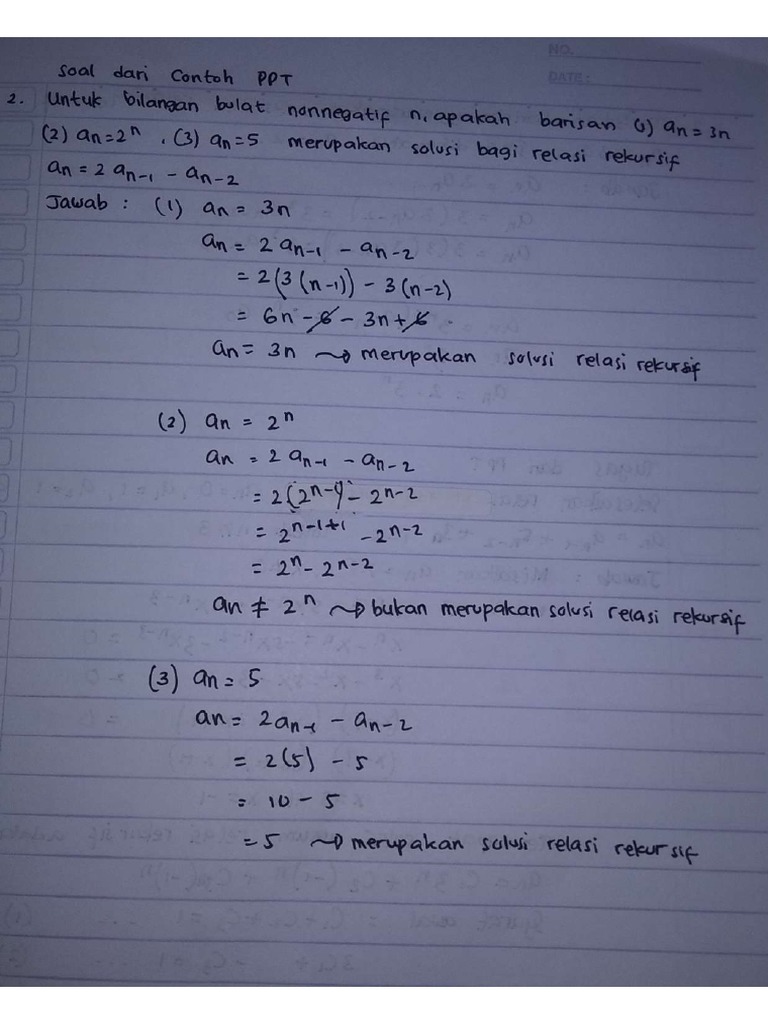 NO.
DATE:
Soal dari Contoh PPT
2. Untuk bilangan bulat nonnegatif n, apakah barisan (1) an = 3n
(2) an = 2ⁿ , (3) an = 5 merupakan solusi bagi relasi rekursif
an = 2 an-1 - an-2
Jawab : (1) an = 3n
an = 2 an-1 - an-2
= 2(3(n-1)) - 3(n-2)
= 6n - 6 - 3n + 6
an = 3n ~> merupakan solusi relasi rekursif
(2) an = 2ⁿ
an = 2 an-1 - an-2
= 2(2ⁿ⁻¹) - 2ⁿ⁻²
= 2ⁿ⁻¹⁺¹ - 2ⁿ⁻²
= 2ⁿ - 2ⁿ⁻²
an ≠ 2ⁿ ~> bukan merupakan solusi relasi rekursif
(3) an = 5
an = 2an-1 - an-2
= 2(5) - 5
= 10 - 5
= 5 ~> merupakan solusi relasi rekursif